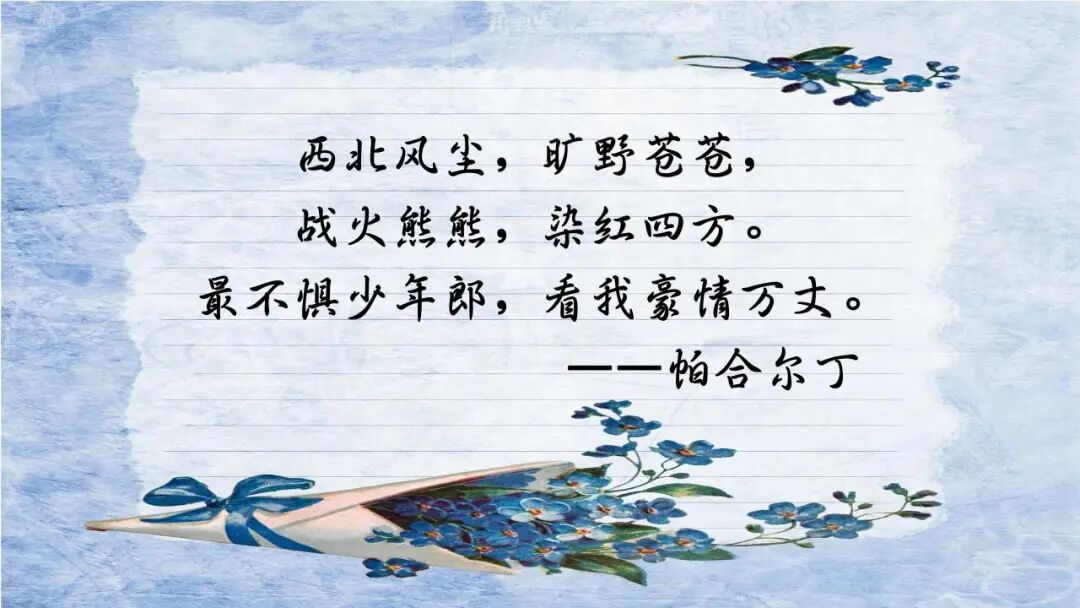 西北风尘，旷野苍苍，
战火熊熊，染红四方。
最不惧少年郎，看我豪情万丈。
——帕合尔丁